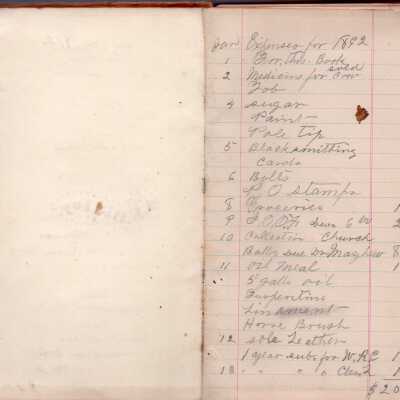 Jan Expenses for 1892
1 For this Book
sold
2 Medicine for Cow
Fob
4 Sugar
Paint
Pole tip
5 Blacksmithing
Cards
6 Bolts
P O stamps
8 Groceries 1
9 I.O.O.F. dues 2
10 Collection Church
Bal due Dr Mayhew 8
11 Oil Meal 1
5 galls oil
Turpentine
Linament
Horse Brush
12 sole Leather
1 year subs for W.R.C 1
13 " " " " 1
$20